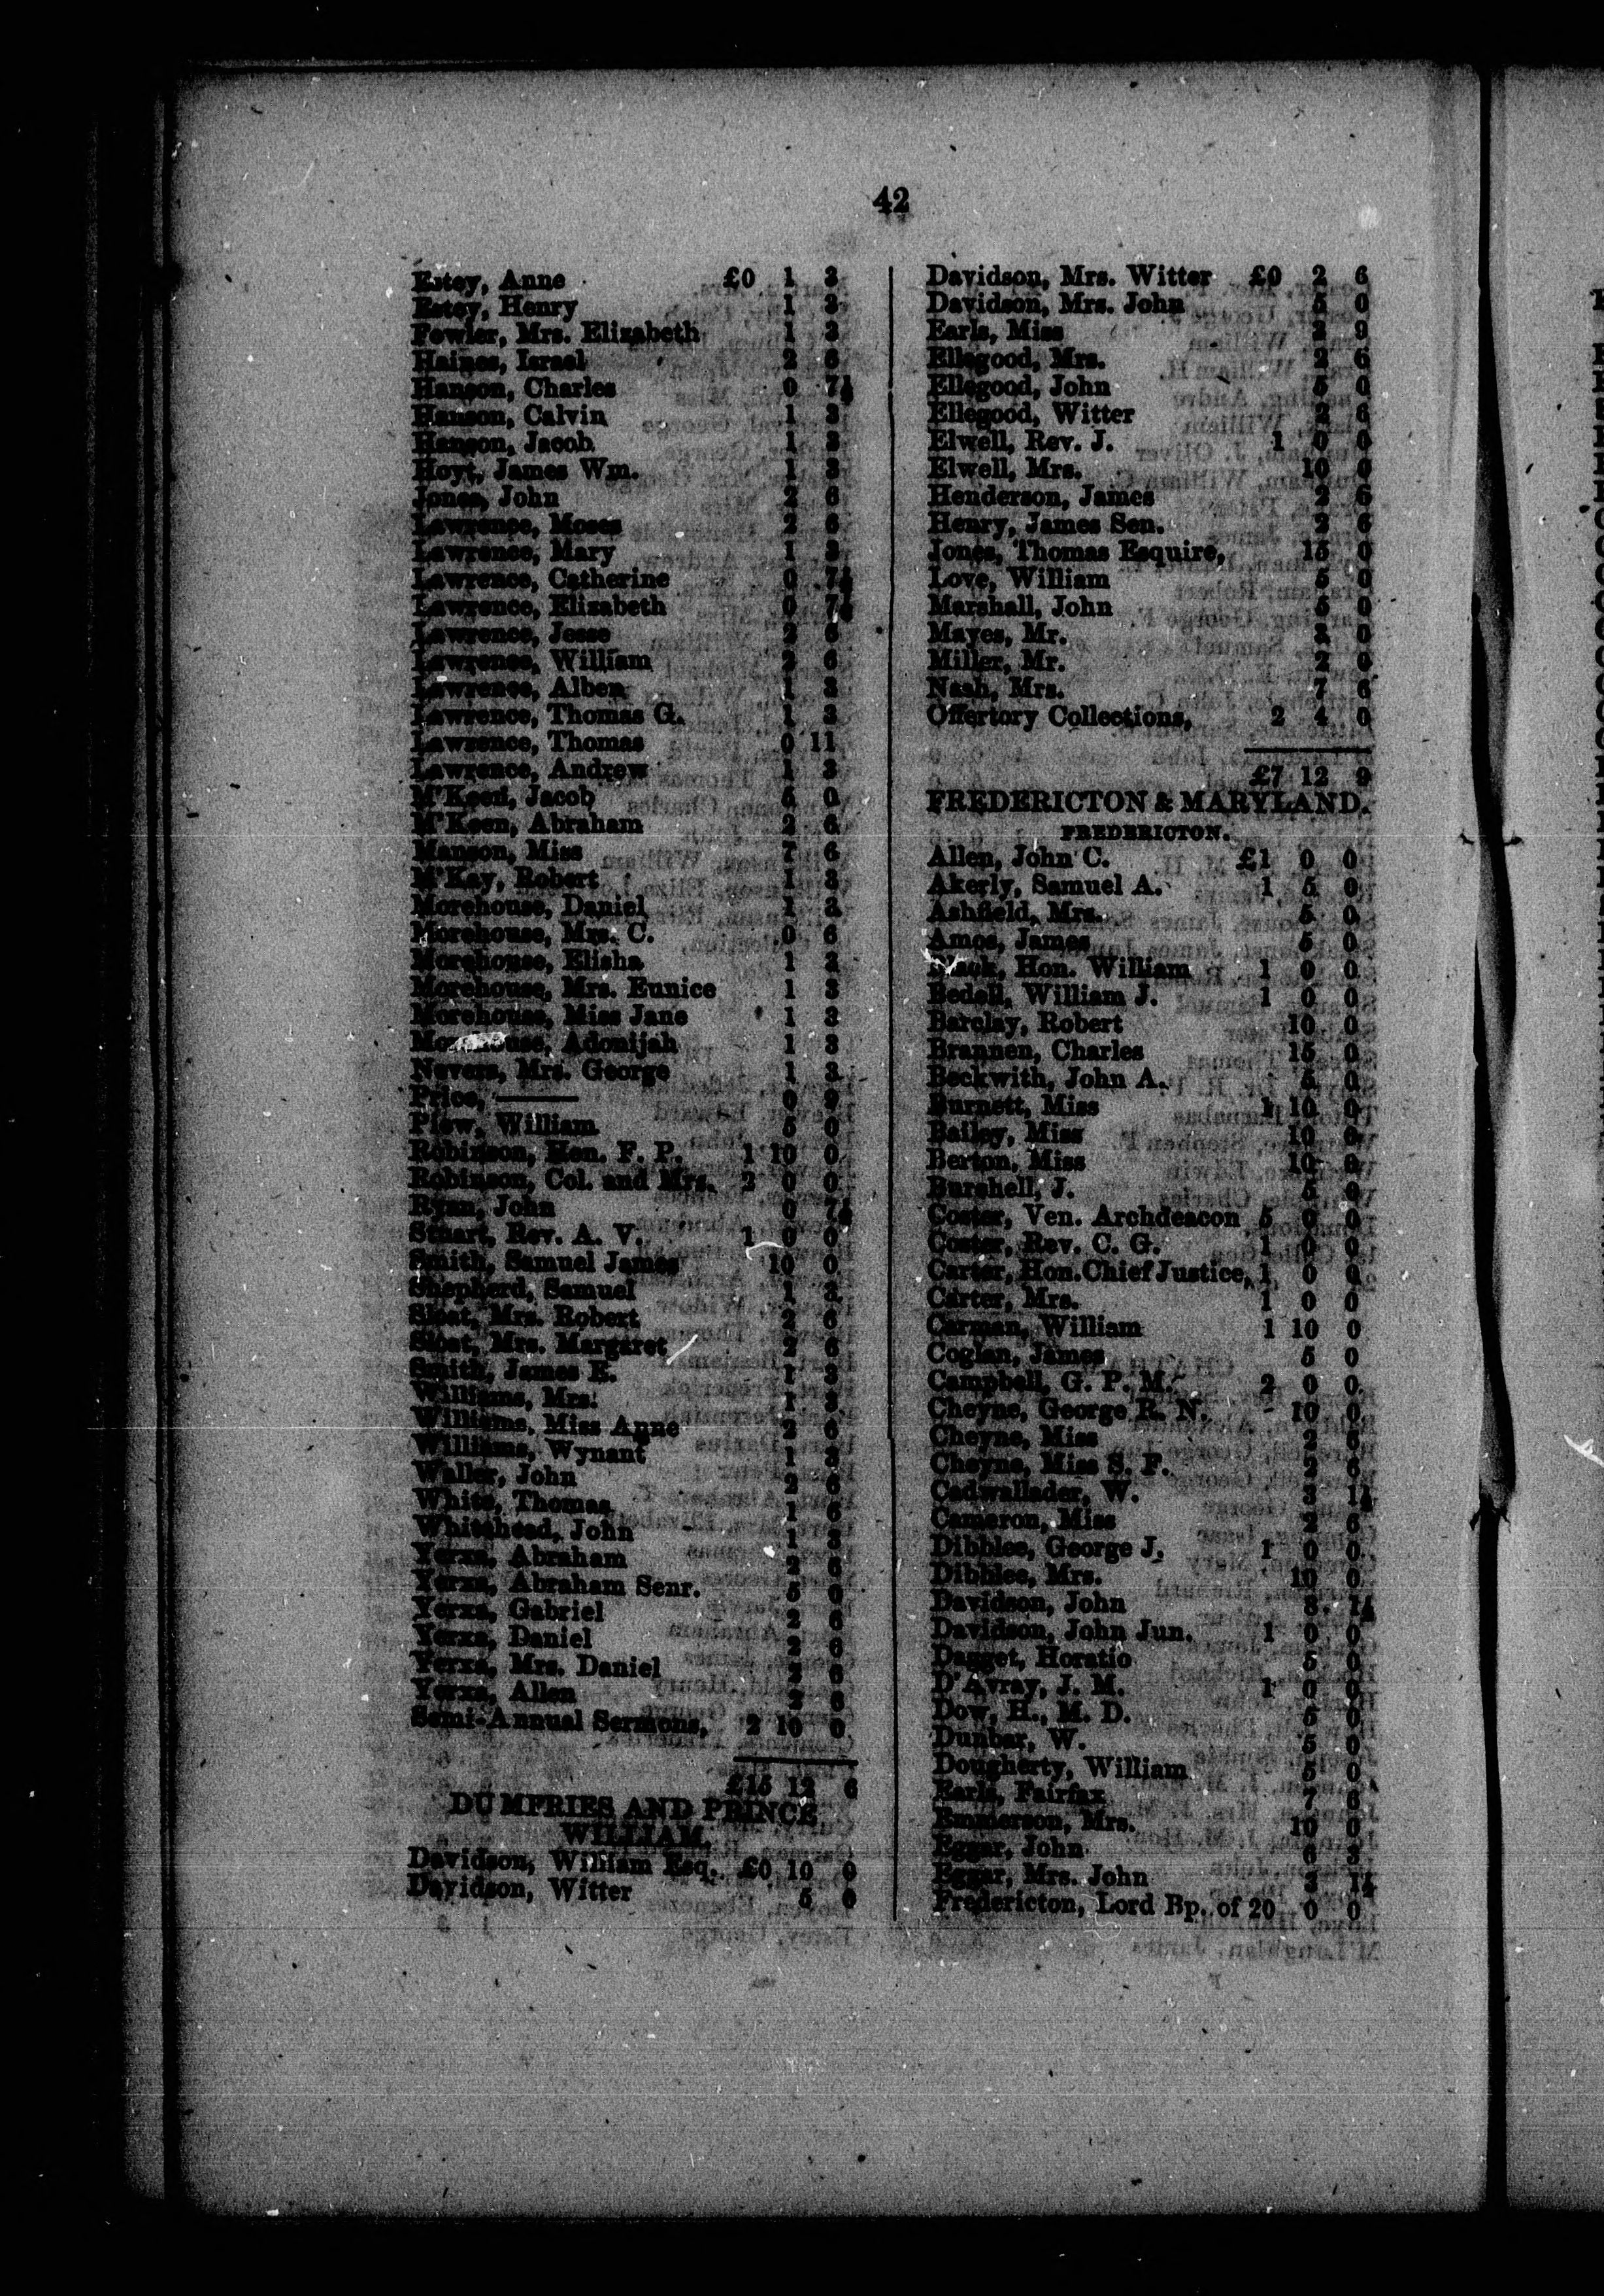 42
Estey, Anne £0 1 3
Estey, Henry 1 3
Fowler, Mrs. Elizabeth 1 3
Haines, Israel 2 6
Hanson, Charles 0 7½
Hanson, Calvin 1 3
Hanson, Jacob 1 3
Hoyt, James Wm. 1 3
Jones, John 2 6
Lawrence, Moses 2 6
Lawrence, Mary 1 3
Lawrence, Catherine 0 7½
Lawrence, Elizabeth 0 7½
Lawrence, Jesse 2 6
Lawrence, William 2 6
Lawrence, Alben 1 3
Lawrence, Thomas G. 1 3
Lawrence, Thomas 0 11
Lawrence, Andrew 1 3
M'Keen, Jacob 5 0
M'Keen, Abraham 2 6
Manson, Miss 7 6
M'Kay, Robert 1 3
Morehouse, Daniel 1 3
Morehouse, Mrs. C. 0 6
Morehouse, Elisha 1 3
Morehouse, Mrs. Eunice 1 3
Morehouse, Miss Jane 1 3
Morehouse, Adonijah 1 3
Nevers, Mrs. George 1 3
Price, —— 0 9
Plow, William 5 0
Robinson, Hon. F. P. 1 10 0
Robinson, Col. and Mrs. 2 0 0
Ryan, John 0 7½
Stuart, Rev. A. V. 1 0 0
Smith, Samuel James 10 0
Shepherd, Samuel 1 3
Sloat, Mrs. Robert 2 6
Sloat, Mrs. Margaret 2 6
Smith, James E. 1 3
Williams, Mrs. 1 3
Williams, Miss Anne 2 6
Williams, Wynant 1 3
Waller, John 2 6
White, Thomas 1 6
Whitehead, John 1 3
Yerxa, Abraham 2 6
Yerxa, Abraham Senr. 5 0
Yerxa, Gabriel 2 6
Yerxa, Daniel 2 6
Yerxa, Mrs. Daniel 2 6
Yerxa, Allen 2 6
Semi-Annual Sermons, 2 10 0
£15 12 6
DUMFRIES AND PRINCE
WILLIAM.
Davidson, William Esq. £0 10 0
Davidson, Witter 5 0
Davidson, Mrs. Witter £0 2 6
Davidson, Mrs. John 5 0
Earls, Miss 2 9
Ellegood, Mrs. 2 6
Ellegood, John 5 0
Ellegood, Witter 2 6
Elwell, Rev. J. 1 0 0
Elwell, Mrs. 10 0
Henderson, James 2 6
Henry, James Sen. 2 6
Jones, Thomas Esquire, 15 0
Love, William 5 0
Marshall, John 5 0
Mayes, Mr. 0
Miller, Mr. 2 0
Nash, Mrs. 7 6
Offertory Collections, 2 4 0
£7 12 9
FREDERICTON & MARYLAND.
FREDERICTON.
Allen, John C. £1 0 0
Akerly, Samuel A. 1 5 0
Ashfield, Mrs. 5 0
Amos, James 5 0
Black, Hon. William 1 0 0
Bedell, William J. 1 0 0
Barclay, Robert 10 0
Brannen, Charles 15 0
Beckwith, John A. 5 0
Burnett, Miss 1 10 0
Bailey, Miss 10 0
Berton, Miss 10 0
Burchell, J. 5 0
Coster, Ven. Archdeacon 5 0 0
Coster, Rev. C. G. 1 0 0
Carter, Hon. Chief Justice, 1 0 0
Carter, Mrs. 1 0 0
Carman, William 1 10 0
Coglan, James 5 0
Campbell, G. P. M. 2 0 0
Cheyne, George R. N. 10 0
Cheyne, Miss 2 6
Cheyne, Miss S. F. 2 6
Cadwallader, W. 3 1½
Cameron, Miss 2 6
Dibblee, George J. 1 0 0
Dibblee, Mrs. 10 0
Davidson, John 3 1½
Davidson, John Jun. 1 0 0
Dagget, Horatio 5 0
D'Avray, J. M. 1 0 0
Dow, H., M. D. 5 0
Dunbar, W. 5 0
Dougherty, William 5 0
Earls, Fairfax 7 6
Emmerson, Mrs. 10 0
Eggar, John 6 3
Eggar, Mrs. John 3 1½
Fredericton, Lord Bp. of 20 0 0